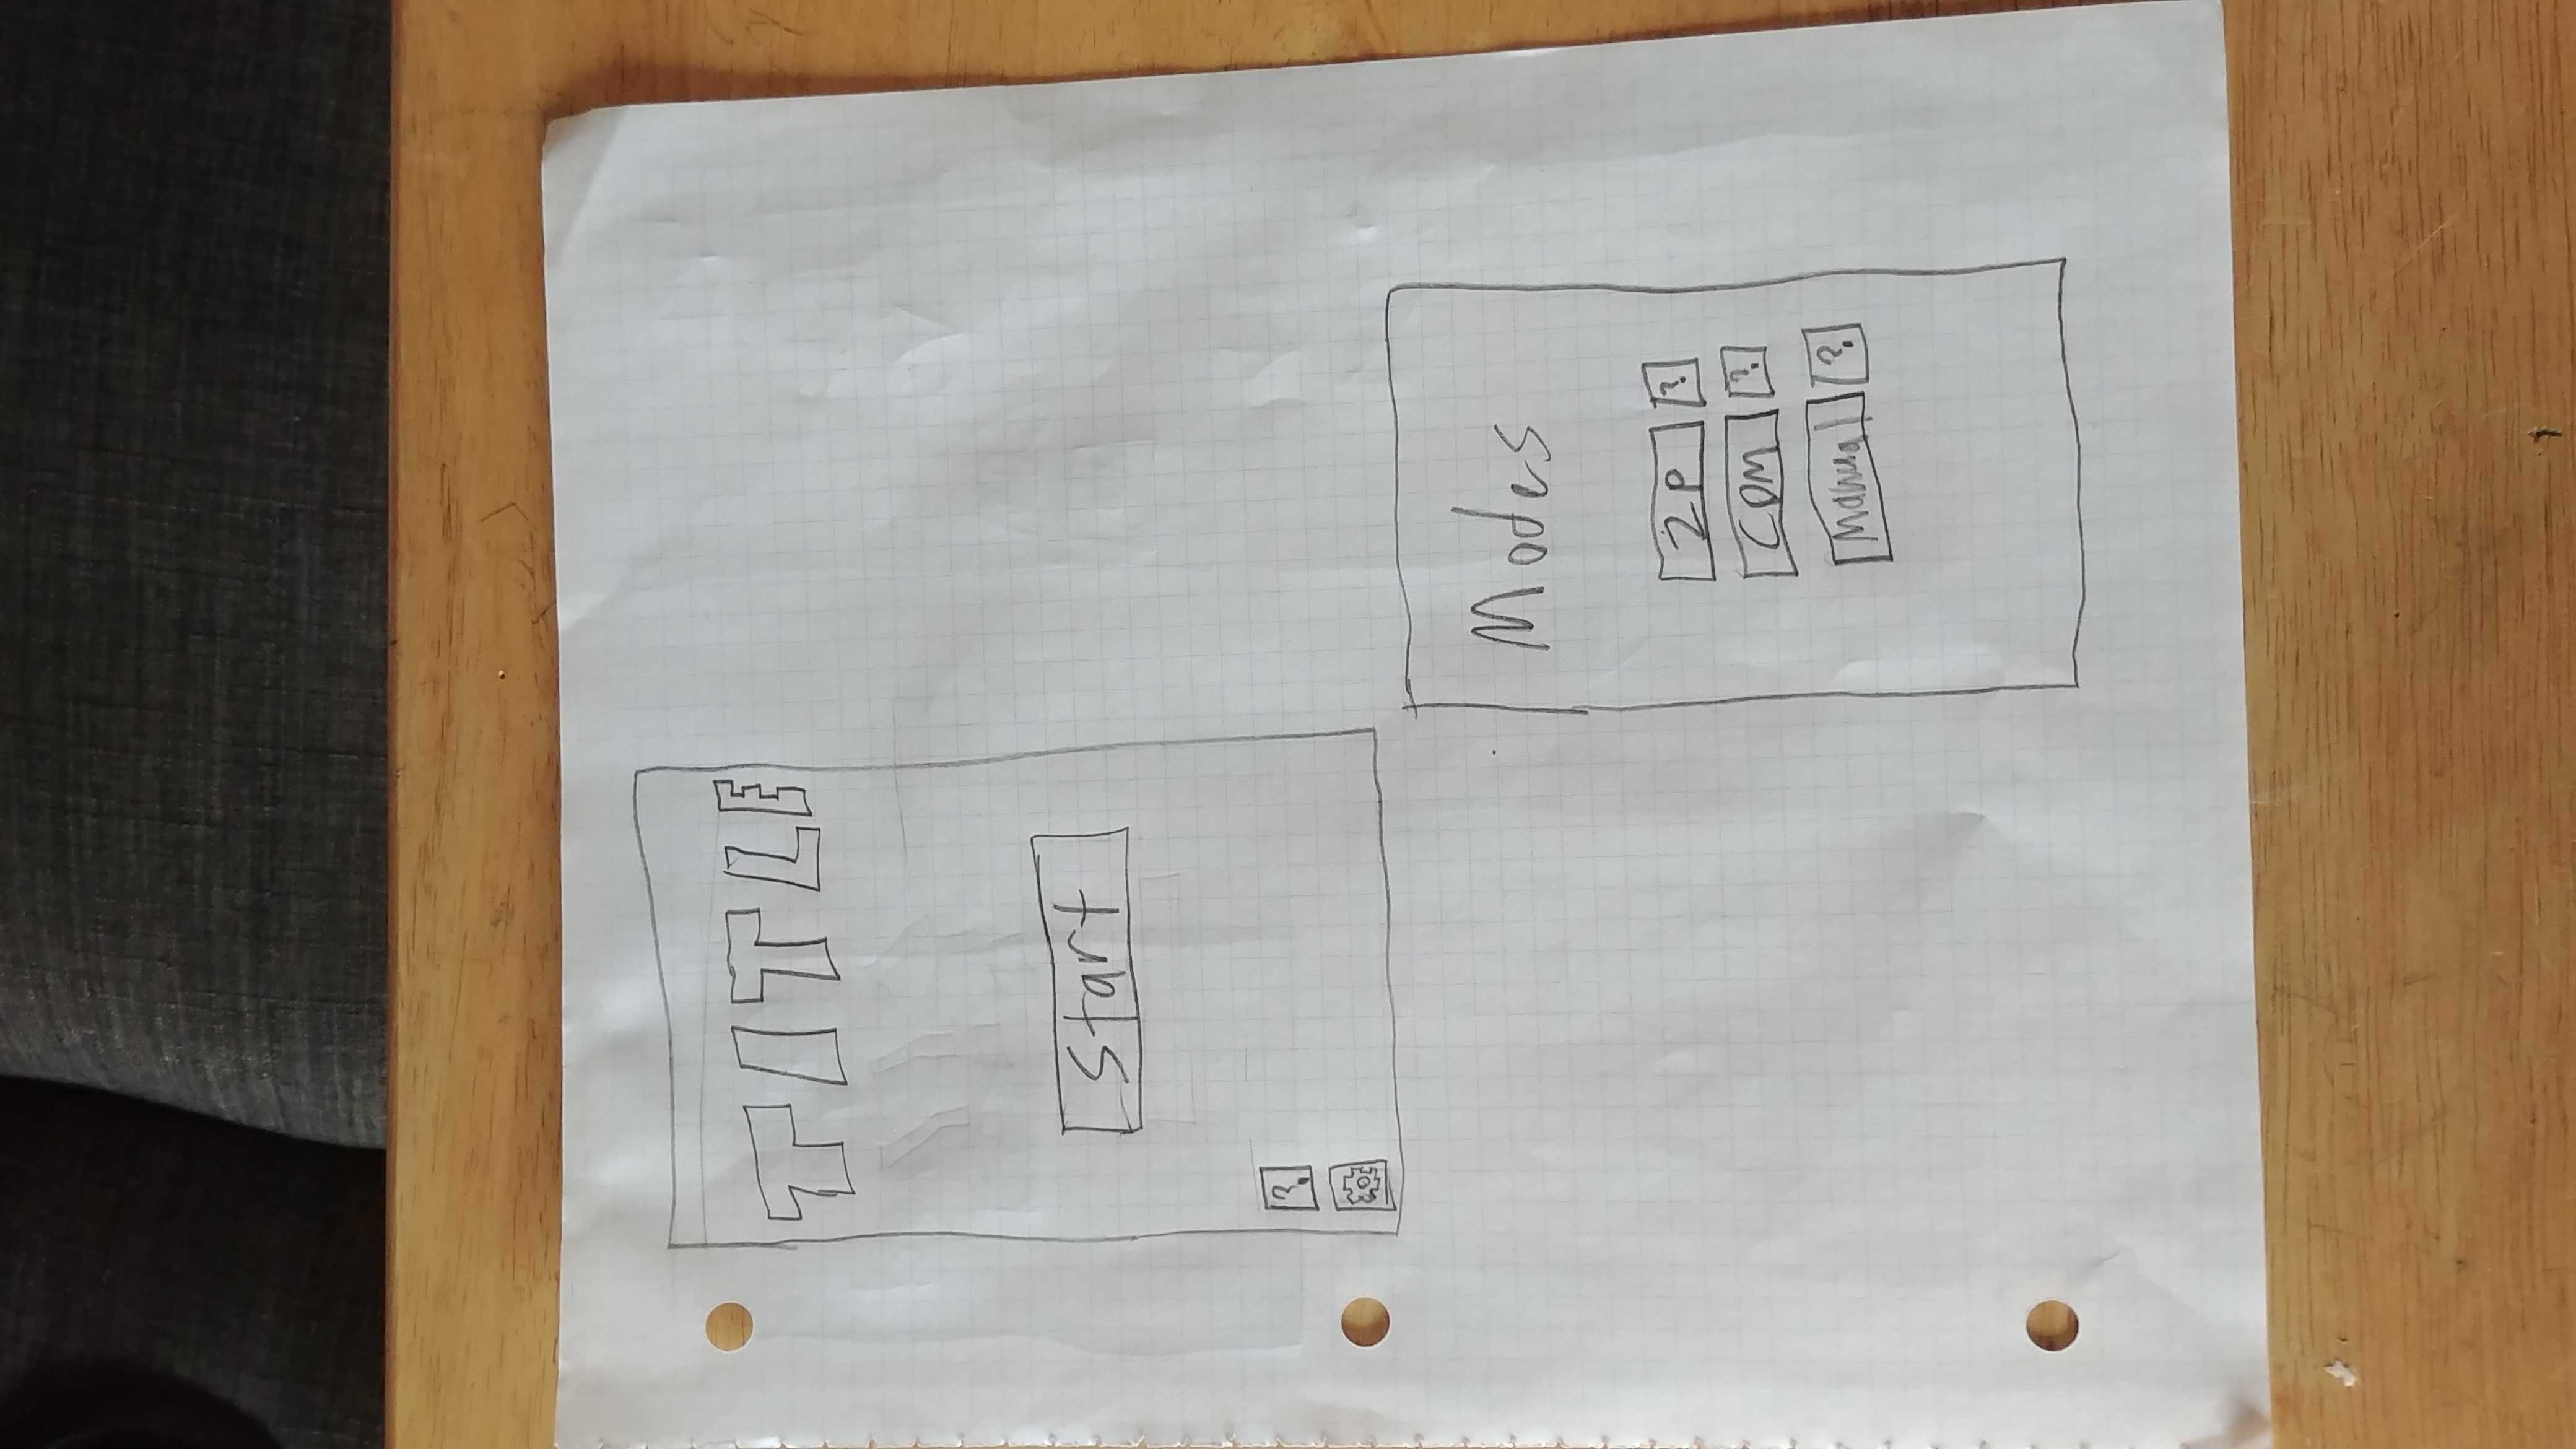 TITLE
Start
?
Modes
2P ?
COM ?
Manual ?